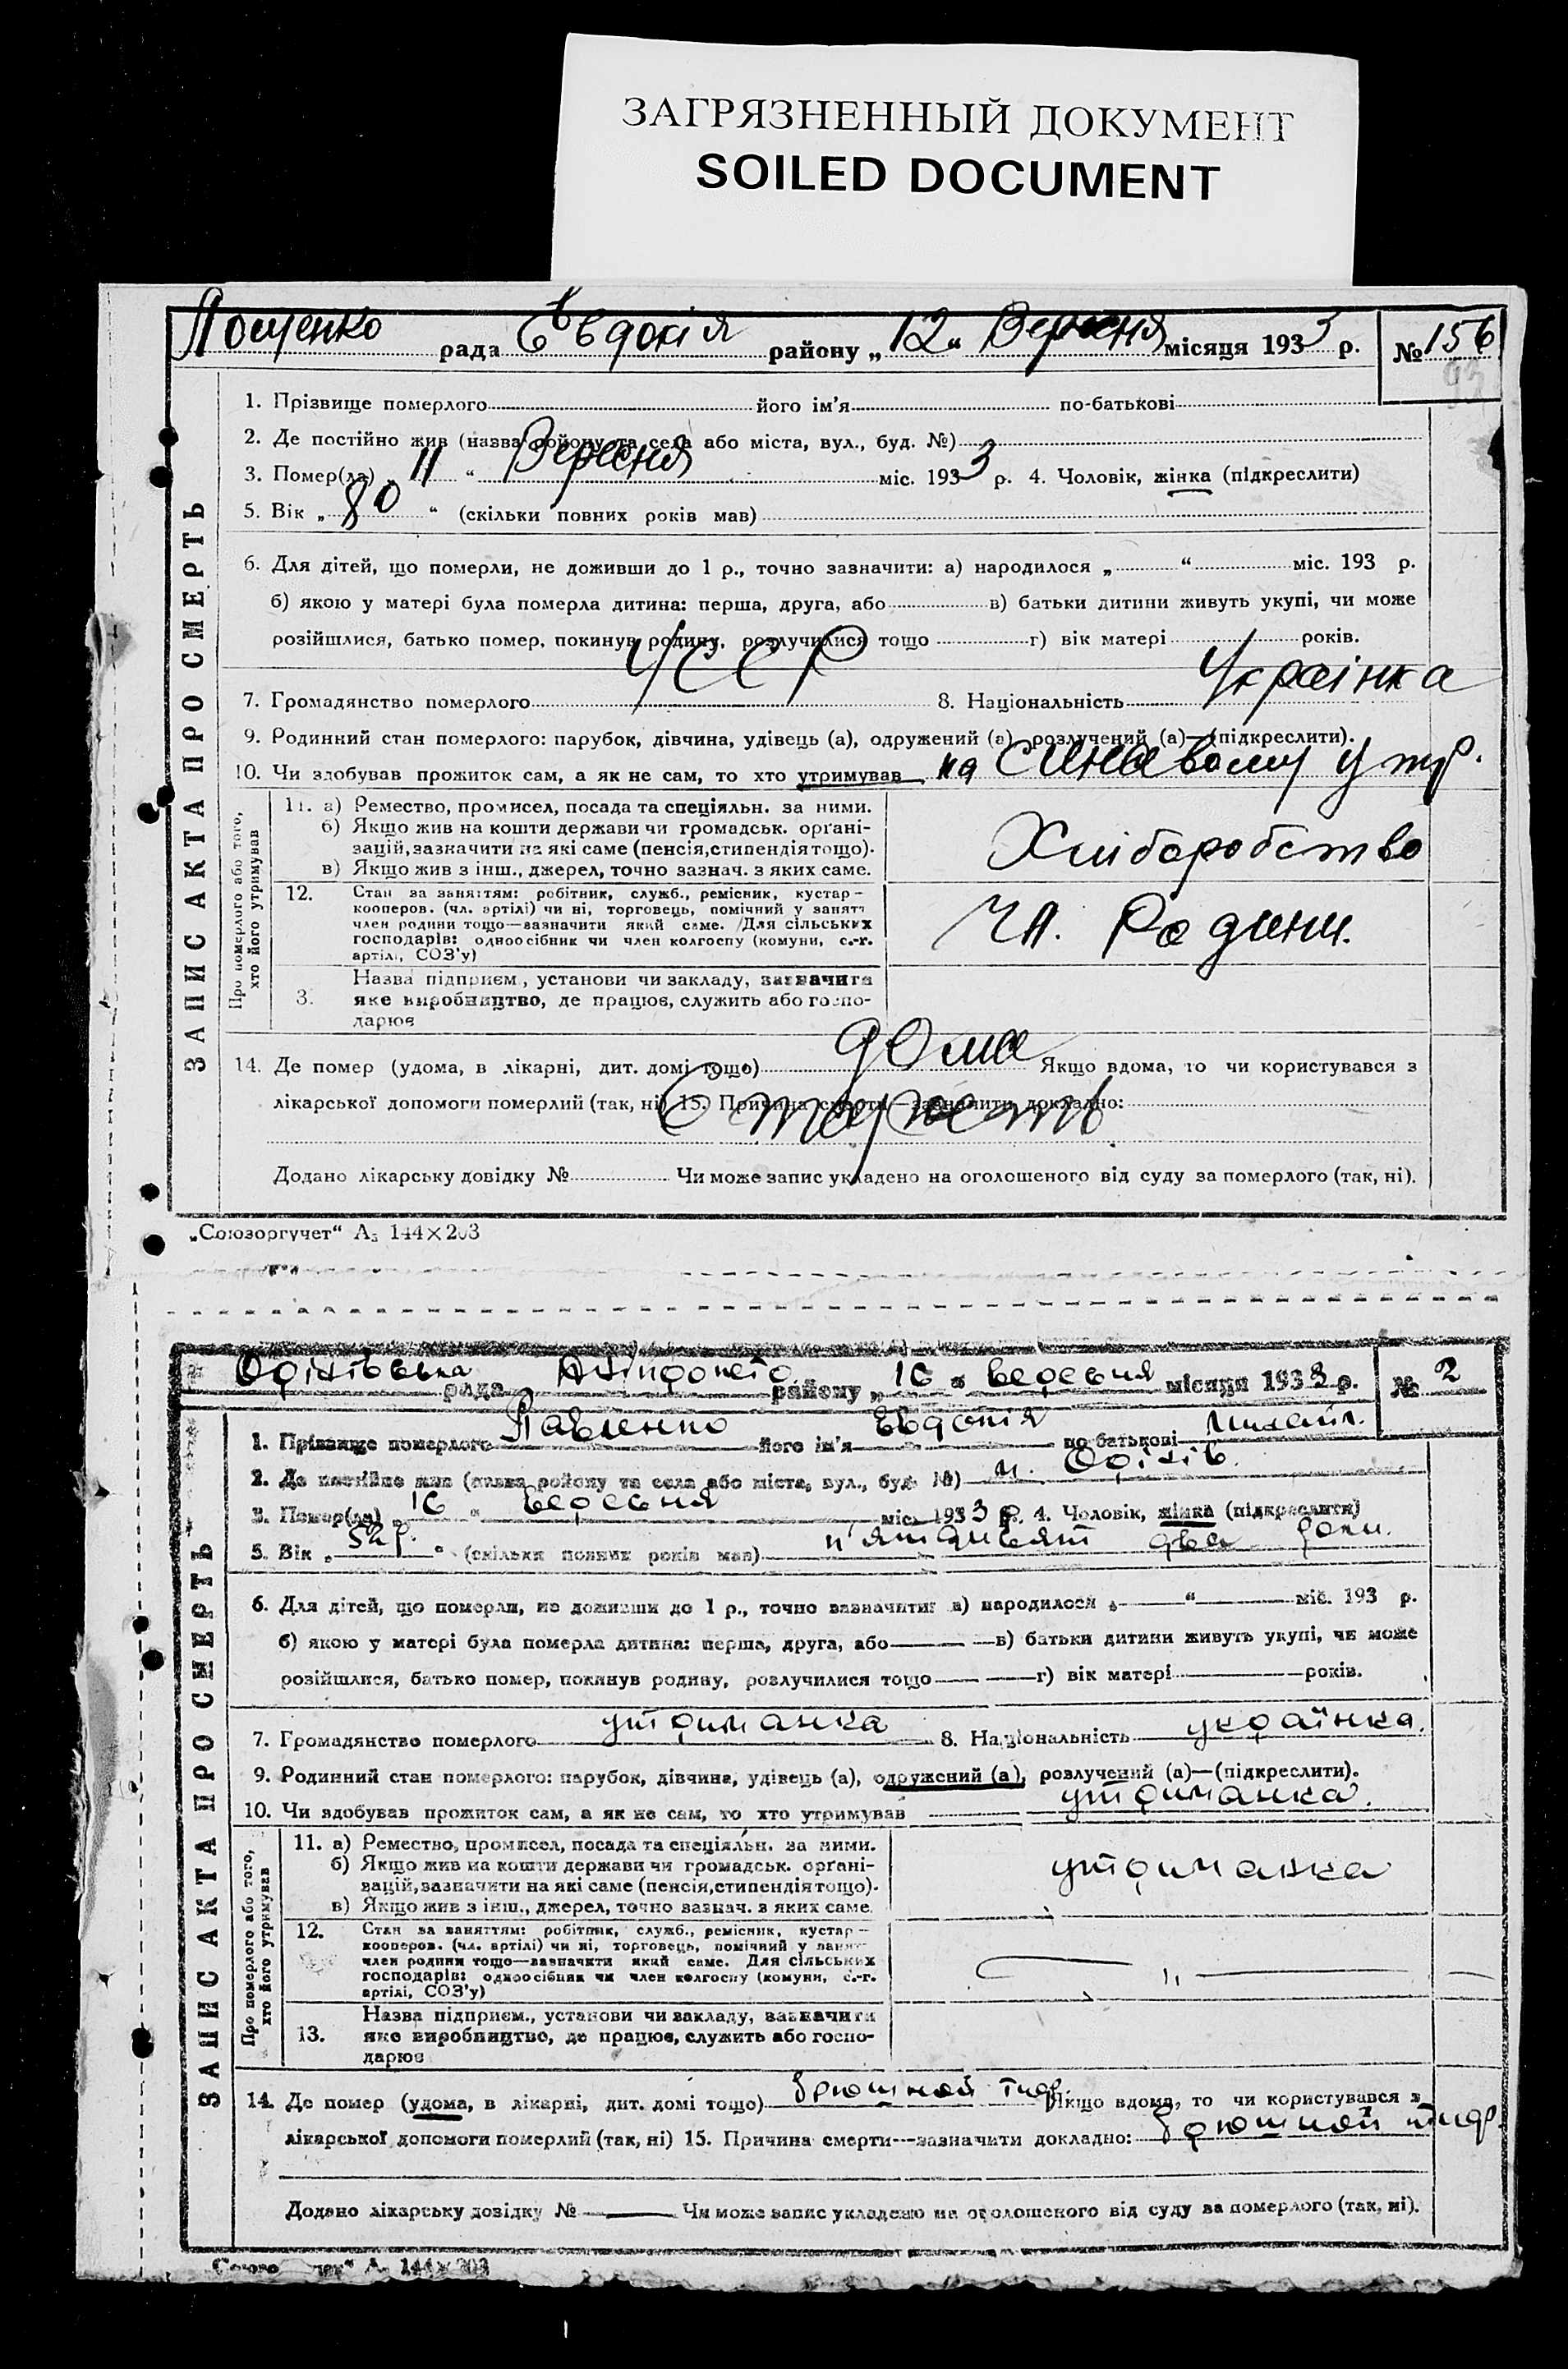 ЗАГРЯЗНЕННЫЙ ДОКУМЕНТ
SOILED DOCUMENT
Пощенко рада Євдокія району „12“ Вересня місяця 1933 р. № 156
ЗАПИС АКТА ПРО СМЕРТЬ
1. Прізвище померлого його ім’я по-батькові
2. Де постійно жив (назва району та села або міста, вул., буд. №)
3. Помер(ла) „11“ Вересня міс. 1933 р. 4. Чоловік, жінка (підкреслити)
5. Вік „80“ (скільки повних років мав)
6. Для дітей, що померли, не доживши до 1 р., точно зазначити: а) народилося „ “ міс. 193 р.
б) якою у матері була померла дитина: перша, друга, або в) батьки дитини живуть укупі, чи може
розійшлися, батько помер, покинув родину, розлучилися тощо г) вік матері років.
7. Громадянство померлого УССР 8. Національність Українка
9. Родинний стан померлого: парубок, дівчина, удівець (а), одружений (а), розлучений (а)—(підкреслити).
10. Чи здобував прожиток сам, а як не сам, то хто утримував на
Про померлого або того, хто його утримував
11. а) Ремество, промисел, посада та спеціяльн. за ними.
б) Якщо жив на кошти держави чи громадськ. орґані-
зацій, зазначити на які саме (пенсія, стипендія тощо).
в) Якщо жив з інш., джерел, точно зазнач. з яких саме.
Хліборобство
12. Стан за заняттям: робітник, служб., ремісник, кустар—
кооперов. (чл. артілі) чи ні, торговець, помічний у занятт
член родини тощо—зазначити який саме. Для сільських
господарів: одноосібник чи член колгоспу (комуни, с.-г.
артілі, СОЗ’у)
Чл. Родини.
3. Назва підприєм., установи чи закладу, зазначити
яке виробництво, де працює, служить або госпо-
дарює
14. Де помер (удома, в лікарні, дит. домі тощо) дома Якщо вдома, то чи користувався з
лікарської допомоги померлий (так, ні) 15. Причина смерти—зазначити докладно:
Старость
Додано лікарську довідку № Чи може запис укладено на оголошеного від суду за померлого (так, ні).
„Союзоргучет“ А₅ 144×203
Оріхівська рада району „16“ вересня місяця 1933 р. № 2
ЗАПИС АКТА ПРО СМЕРТЬ
1. Прізвище померлого Павленко його ім’я Евдокія по-батькові Михайл.
2. Де постійно жив (назва району та села або міста, вул., буд. №) м. Оріхів.
3. Помер(ла) „16“ вересня міс. 1933 р. 4. Чоловік, жінка (підкреслити)
5. Вік „52 р.“ (скільки повних років мав) п'ятдесят два роки.
6. Для дітей, що померли, не доживши до 1 р., точно зазначити: а) народилося „ “ міс. 193 р.
б) якою у матері була померла дитина: перша, друга, або в) батьки дитини живуть укупі, чи може
розійшлися, батько помер, покинув родину, розлучилися тощо г) вік матері років.
7. Громадянство померлого утриманка 8. Національність українка.
9. Родинний стан померлого: парубок, дівчина, удівець (а), одружений (а), розлучений (а)—(підкреслити).
10. Чи здобував прожиток сам, а як не сам, то хто утримував утриманка.
Про померлого або того, хто його утримував
11. а) Ремество, промисел, посада та спеціяльн. за ними.
б) Якщо жив на кошти держави чи громадськ. орґані-
зацій, зазначити на які саме (пенсія, стипендія тощо).
в) Якщо жив з інш., джерел, точно зазнач. з яких саме.
утриманка
12. Стан за заняттям: робітник, служб., ремісник, кустар—
кооперов. (чл. артілі) чи ні, торговець, помічний у занят
член родини тощо—зазначити який саме. Для сільських
господарів: одноосібник чи член колгоспу (комуни, с.-г.
артілі, СОЗ’у)
— „ —
13. Назва підприєм., установи чи закладу, зазначити
яке виробництво, де працює, служить або госпо-
дарює
14. Де помер (удома, в лікарні, дит. домі тощо) брюшной тиф. Якщо вдома, то чи користувався з
лікарської допомоги померлий (так, ні) 15. Причина смерти—зазначити докладно: брюшной тиф.
Додано лікарську довідку № Чи може запис укладено на оголошеного від суду за померлого (так, ні).
144×203